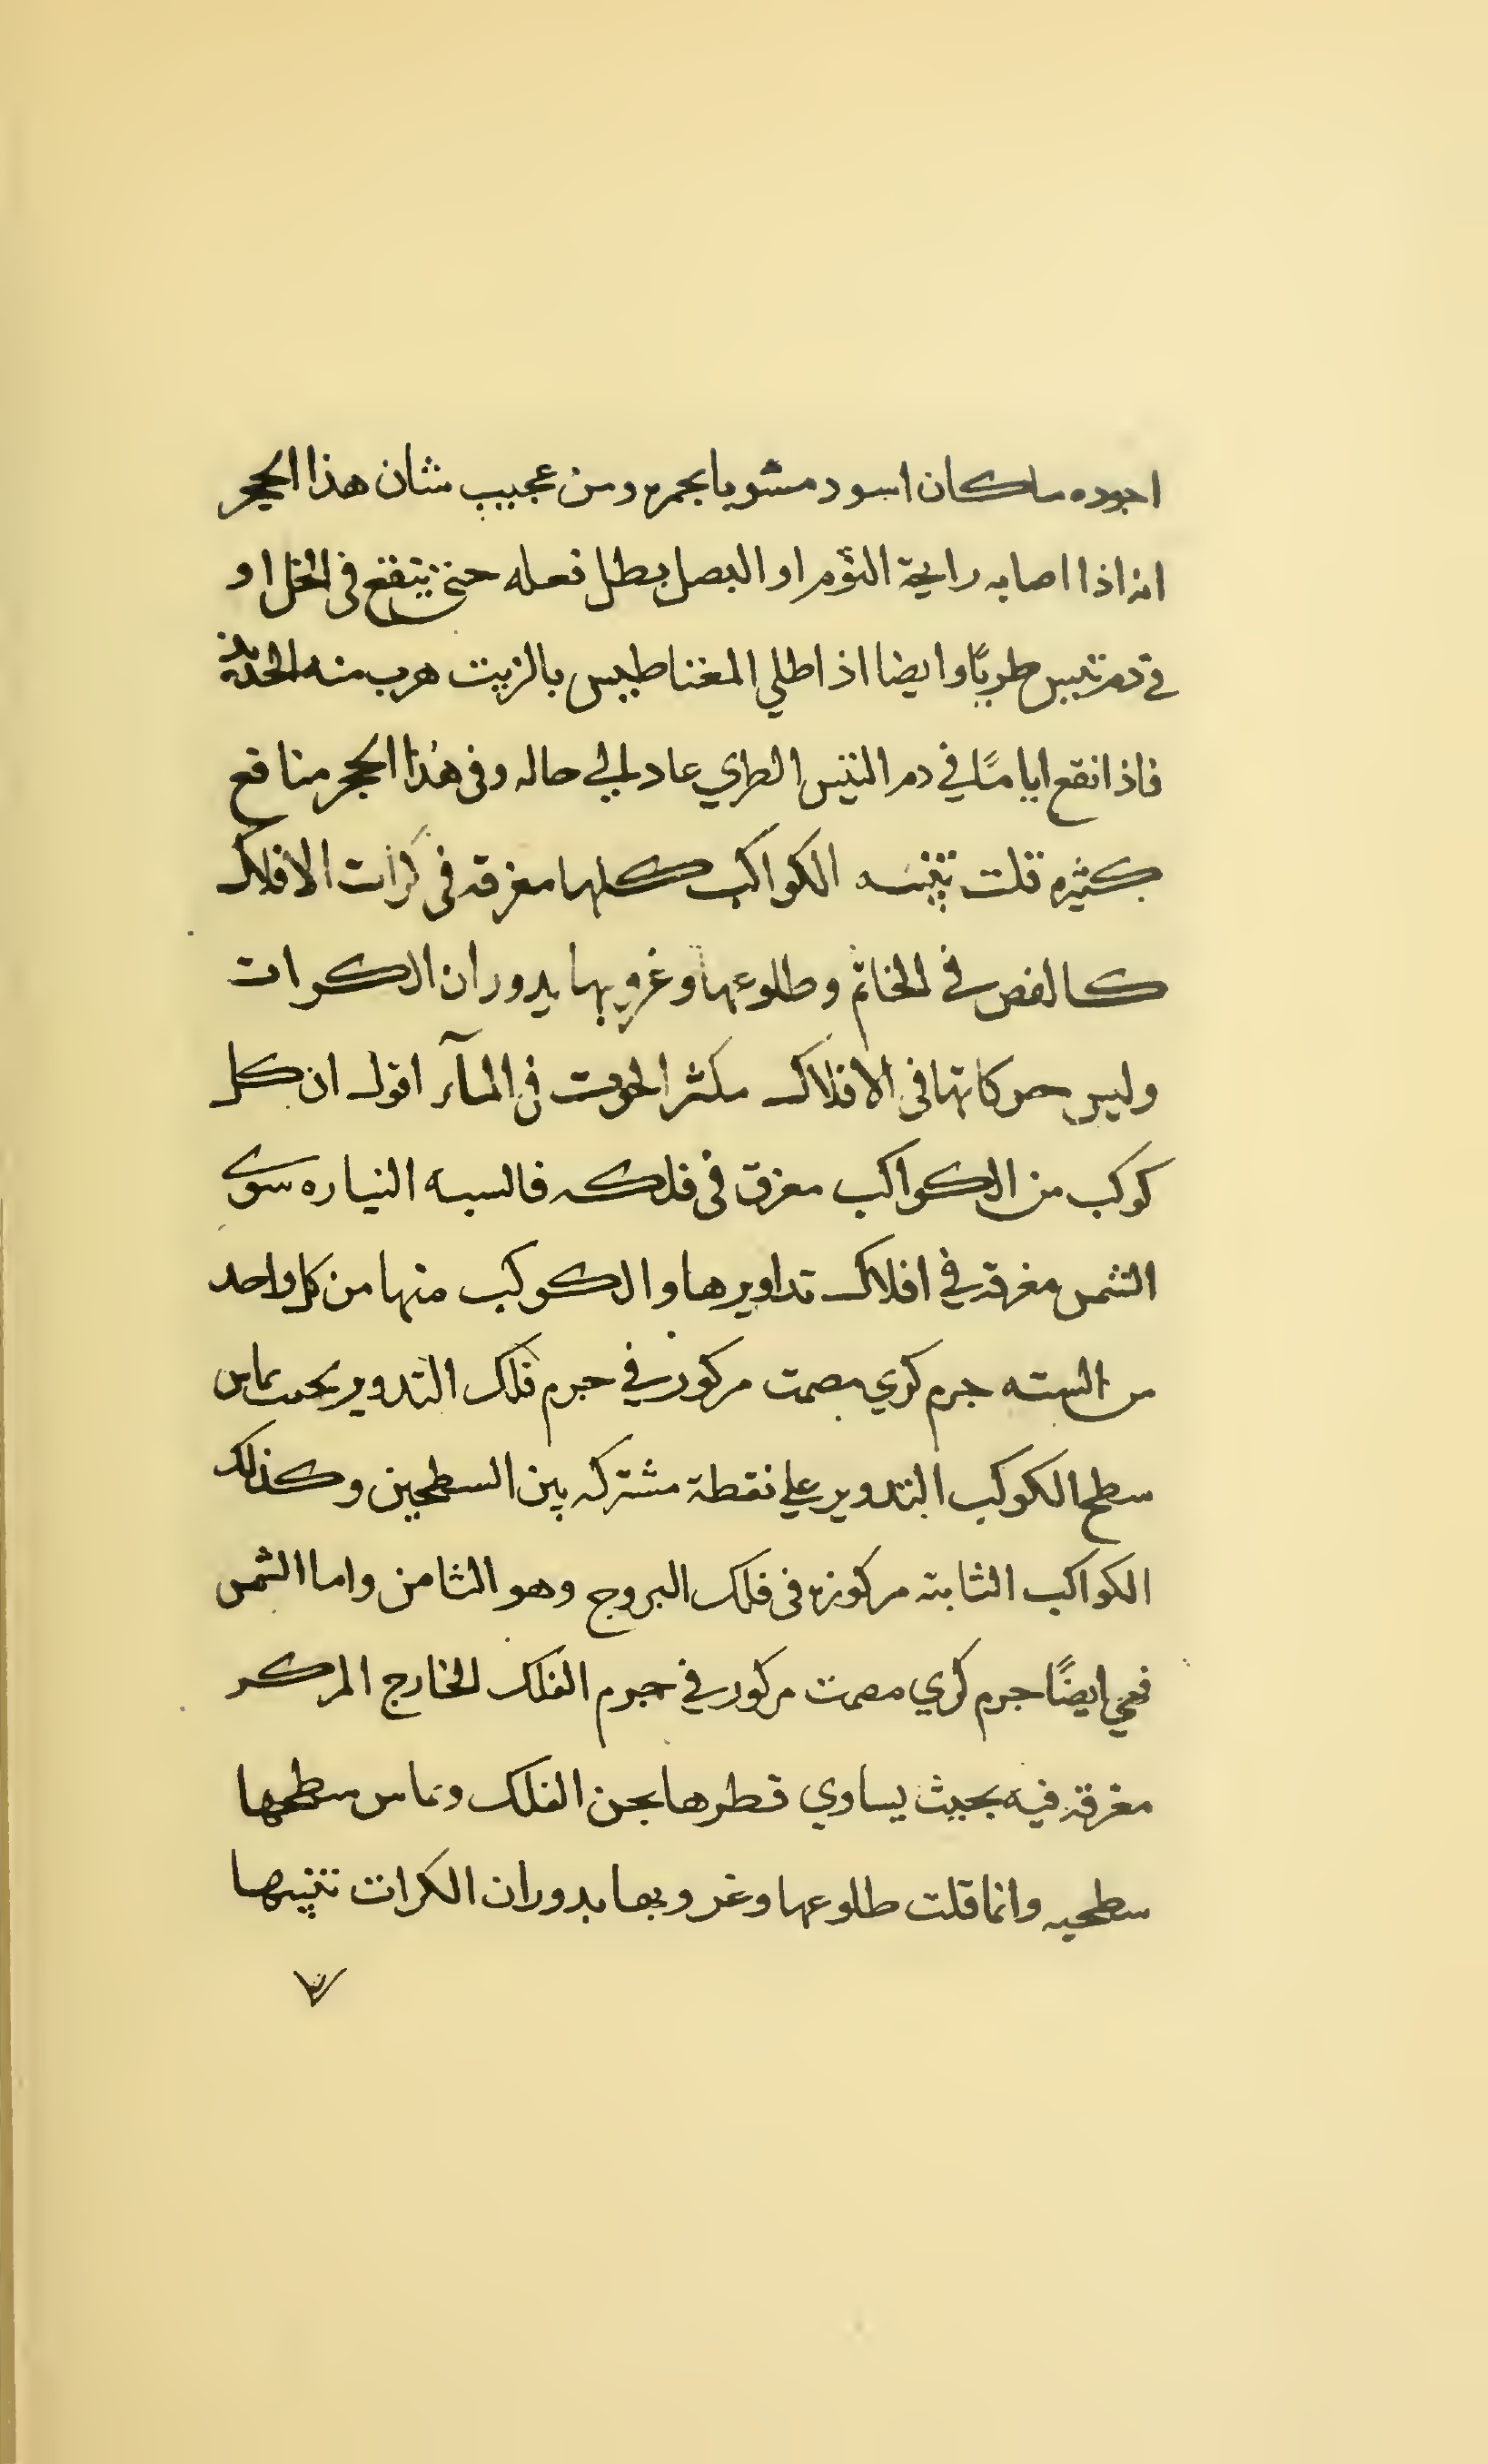 اجوده ما كان اسود مشوبا بحمره ومن عجيب شان هذا الحجر
انه اذا اصابه رايحة الثوم او البصل بطل فعله حتى ينقع فى الخل او
في دم تيس طريًا وايضا اذا طلي المغناطيس بالزيت هرب منه الحديد
فاذا نقع اياما في دم التيس الطري عاد الي حاله وفى هذا الحجر منافع
كثيره قلت تنبيه الكواكب كلها مغرقه فى كرات الافلاك
كالفص في الخاتم وطلوعها وغروبها بدوران الكرات
وليس حركاتها فى الافلاك مكثر الحوت فى المآء اقول ان كل
كوكب من الكواكب مغرق فى فلكه فالسبه السياره سوى
الشمس مغرقة في افلاك تداويرها والكوكب منها من كل واحد
من السته جرم كري مصمت مركوز في جرم فلك التدوير بحيث يماس
سطح الكوكب التدوير علي نقطة مشتركه بين السطحين وكذلك
الكواكب الثابته مركوزه فى فلك البروج وهو الثامن واما الشمس
فهي ايضًا جرم كري مصمت مركوز في جرم الفلك الخارج المركز
مغرقة فيه بحيث يساوي قطرها بحن الفلك وتماس سطحها
سطحيه وانما قلت طلوعها وغروبها بدوران الكرات تنبيها